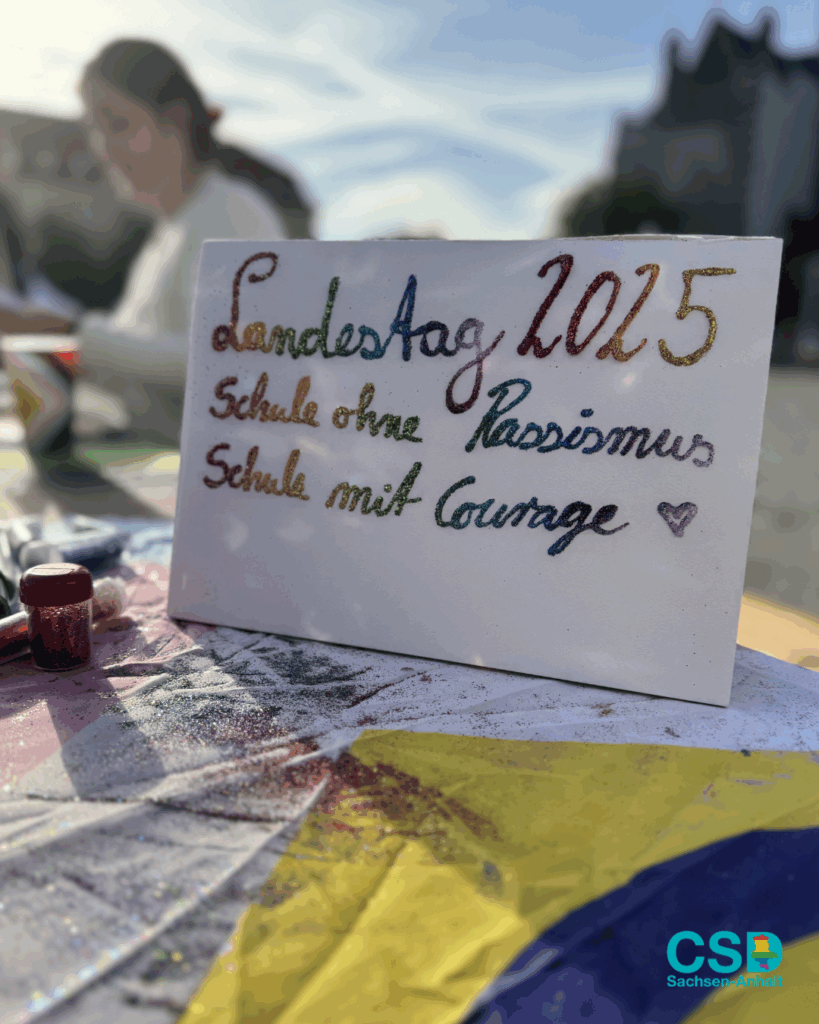 Landestag 2025
Schule ohne Rassismus
Schule mit Courage ♥
CSD
Sachsen-Anhalt